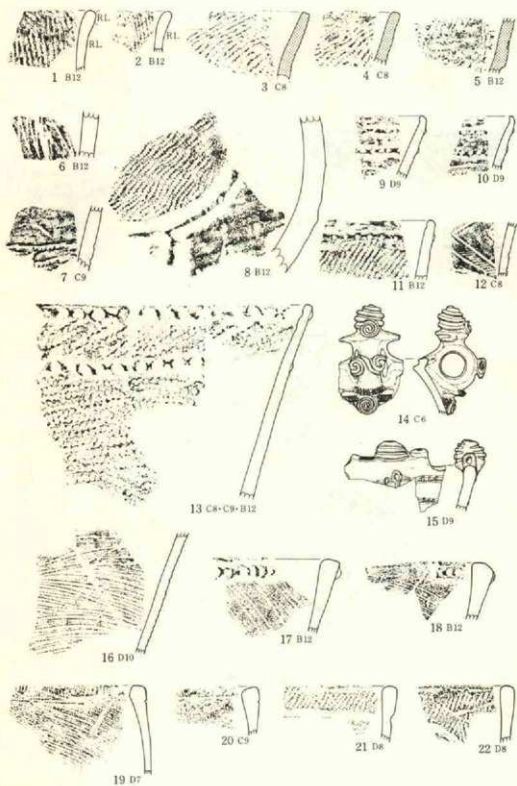 RL
RL
RL
1 B12
2 B12
3 C8
4 C8
5 B12
6 B12
7 C9
8 B12
9 D9
10 D9
11 B12
12 C8
13 C8・C9・B12
14 C6
15 D9
16 D10
17 B12
18 B12
19 D7
20 C9
21 D8
22 D8